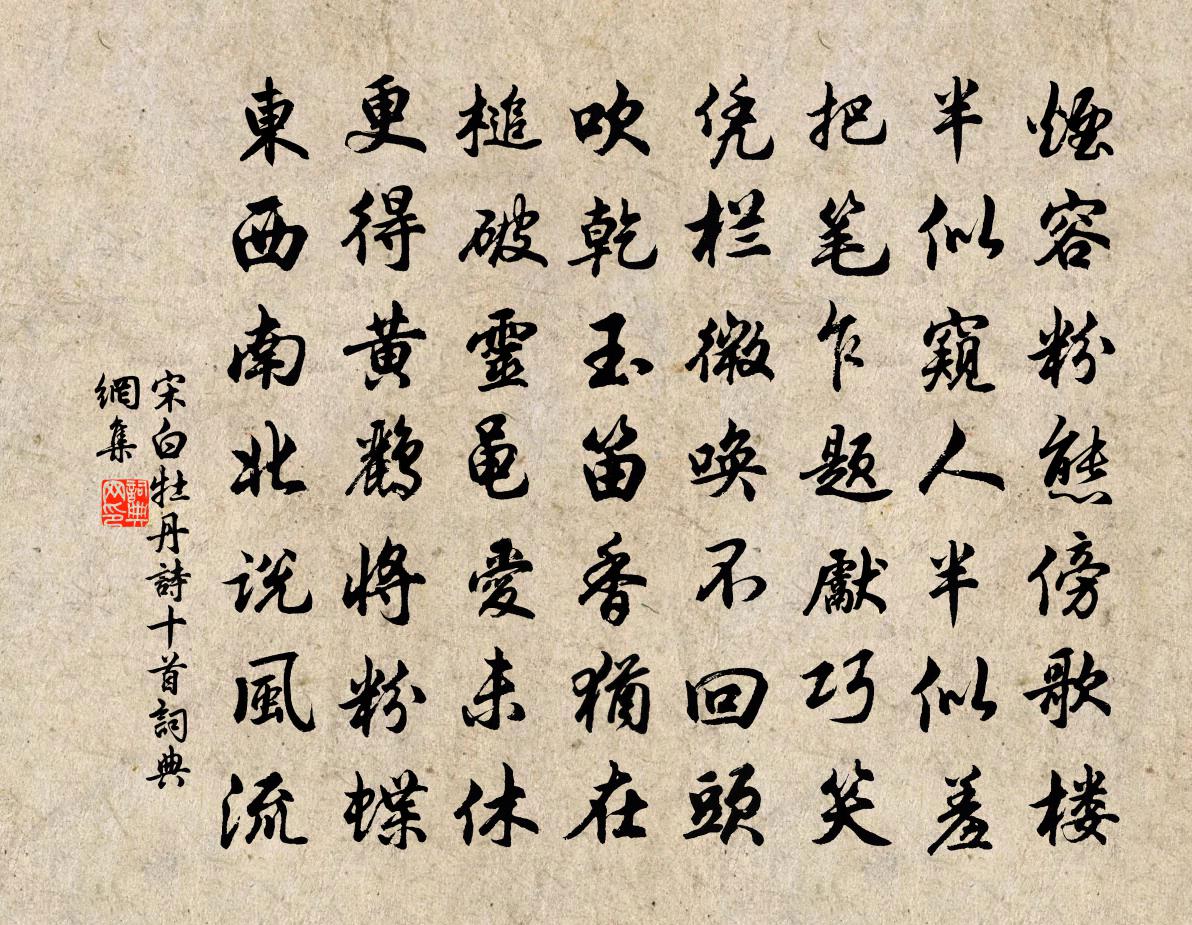 煙容粉態傍歌楼
半似窺人半似羞
把笔乍题獻巧笑
凭栏微唤不回頭
吹乾玉笛香猶在
槌破靈黽愛未休
更得黄鸝將粉蝶
東西南北说風流
宋白牡丹詩十首詞典
網集
詞典
网印